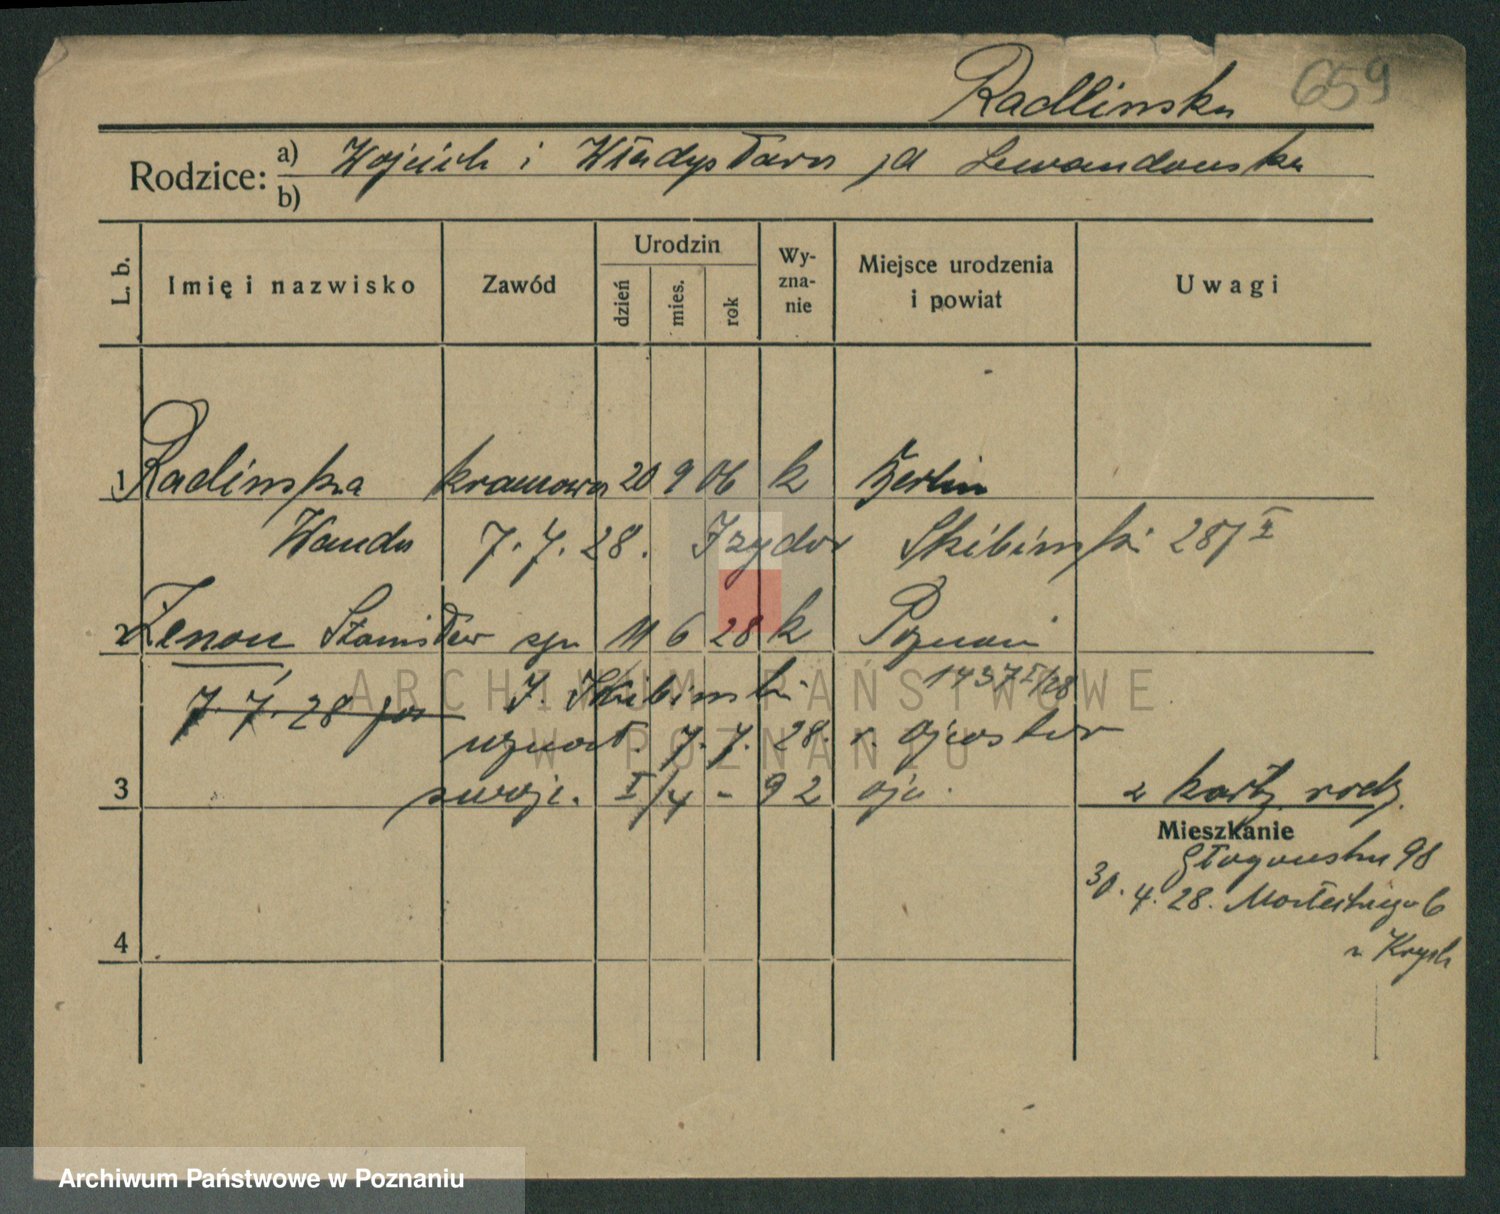 Radlinska 659
Rodzice: a) Wojciech i Władysława zd Lewandowska
b)
L. b. Imię i nazwisko Zawód Urodzin dzień mies. rok Wy-zna-nie Miejsce urodzenia i powiat Uwagi
1 Radlinska krawcowa 20 9 06 k Berlin
Wanda 7.7.28. Izydor Skibinski 287 II
2 Zenon Stanisław syn 11 6 28 k Poznań
1437 I/28
7.7.28 J. Skibinski
uznał. 7.7.28. r. ojcostwo
3 swoje. I/4 - 92 oju.
2 karty rodz.
Mieszkanie
Głogowska 98
30.4.28. 6
4
u Krych
ARCHIWUM PAŃSTWOWE
W POZNANIU
Archiwum Państwowe w Poznaniu